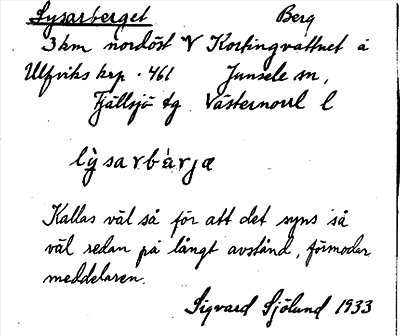 Lysarberget Berg
3 km nordöst V Kortingvattnet å
Ulfviks krp. 461 Junsele sn,
Fjällsjö tg Västernorrl l
lỳsarbàrjæ
Kallas väl så för att det syns så
väl redan på långt avstånd, förmodar
meddelaren.
Sigvard Sjölund 1933